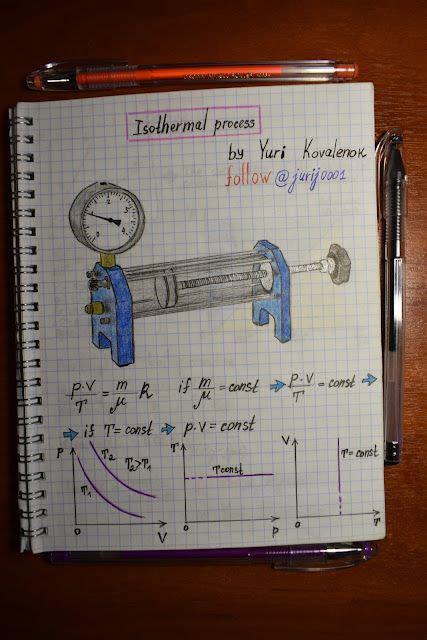 Isothermal process
by Yuri Kovalenok
follow @jurij0001
p·V/T = m/μ R if m/μ = const → p·V/T = const →
→ if T = const → p·V = const
P T₁ T₂ T₂>T₁ 0 V
T T const 0 P
V T=const 0 T